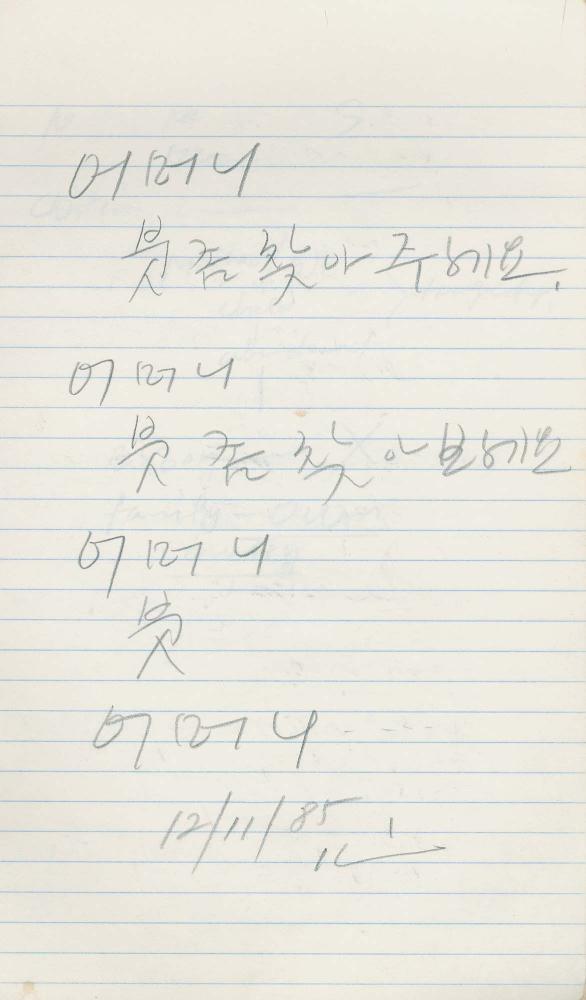 어머니
붓 좀 찾아 주세요.
어머니
붓 좀 찾아 보세요
어머니
붓
어머니 - - - -
12/11/85